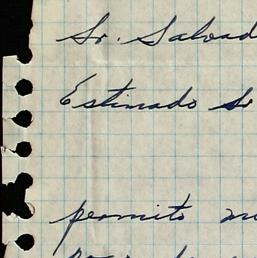 Sr. Salvad
Estimado Sr
permito me